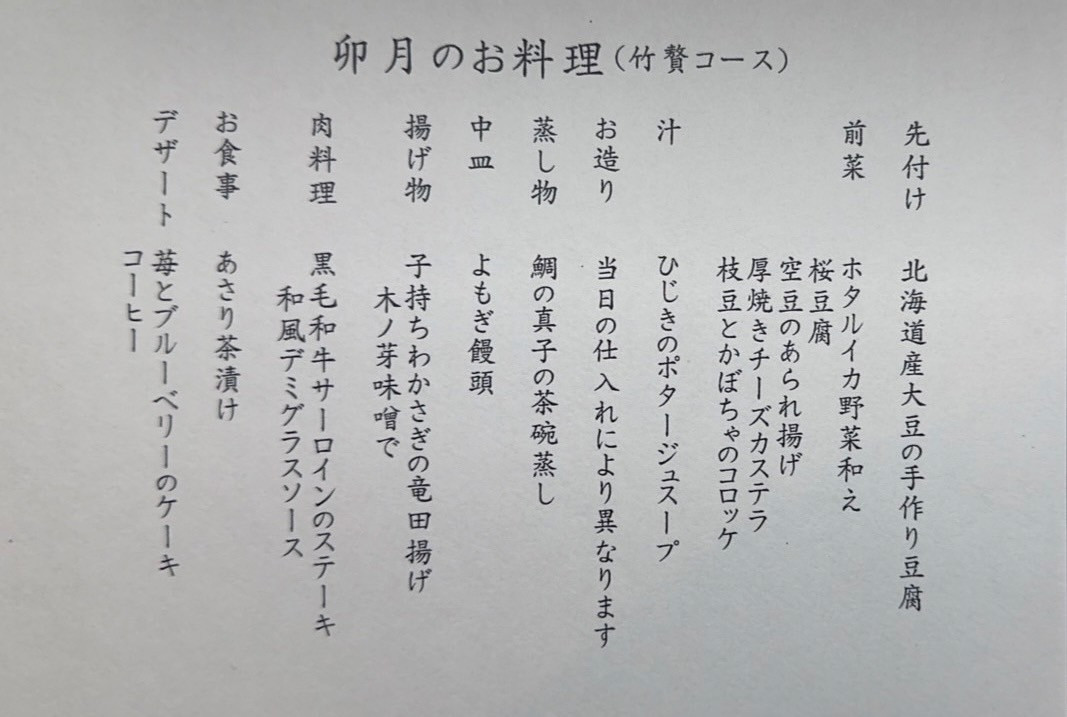 卯月のお料理（竹贅コース）
先付け　北海道産大豆の手作り豆腐
前菜　ホタルイカ野菜和え
桜豆腐
空豆のあられ揚げ
厚焼きチーズカステラ
枝豆とかぼちゃのコロッケ
汁　ひじきのポタージュスープ
お造り　当日の仕入れにより異なります
蒸し物　鯛の真子の茶碗蒸し
中皿　よもぎ饅頭
揚げ物　子持ちわかさぎの竜田揚げ
木ノ芽味噌で
肉料理　黒毛和牛サーロインのステーキ
和風デミグラスソース
お食事　あさり茶漬け
デザート　苺とブルーベリーのケーキ
コーヒー